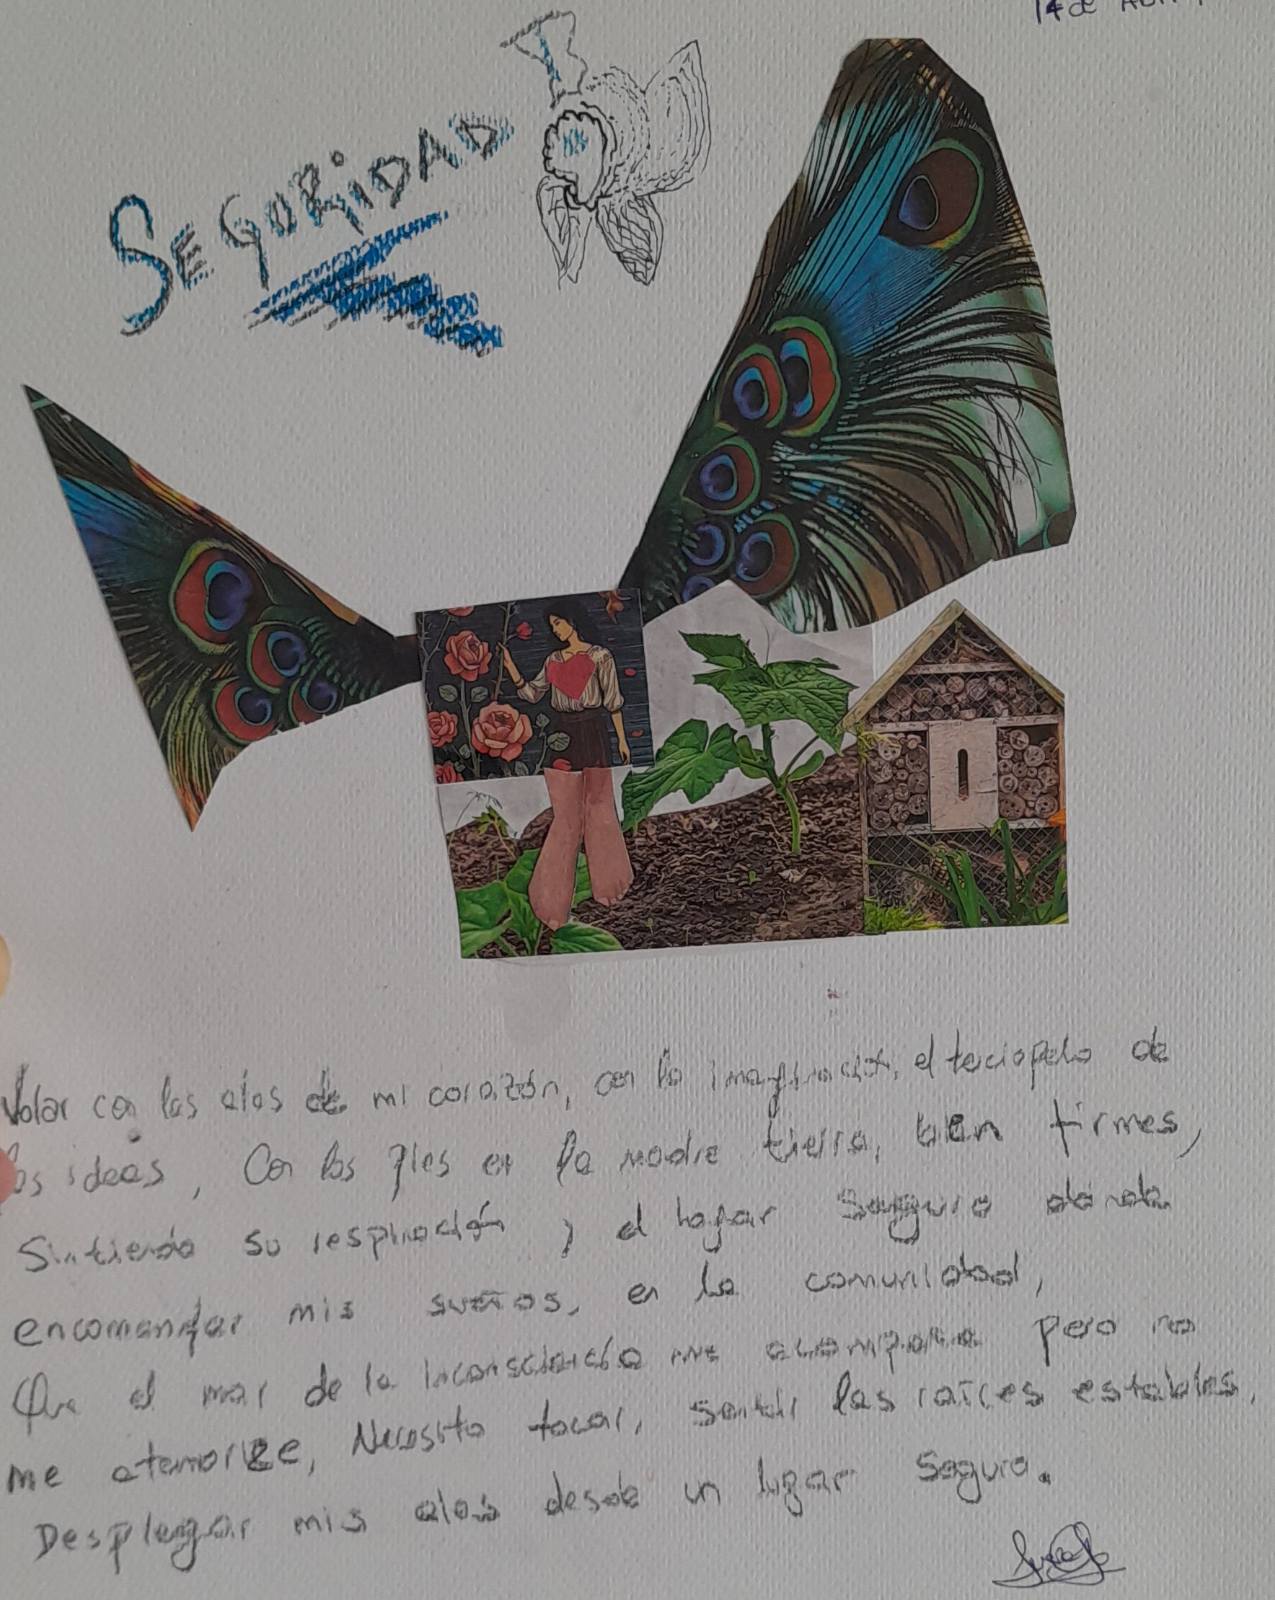 14 de Abril
SEGURIDAD
Volar con las alas de mi corazón, con la imaginación, el terciopelo de
las ideas, Con los pies en la madre tierra, bien firmes,
Sintiendo su respiración, y el hogar seguro dónde
mis sueños, en la comunidad,
Que el mar de la inconsciencia me acompañe pero no
me atemorize, Necesito tocar, sentir las raíces estables,
Desplegar mis alas desde un lugar seguro.